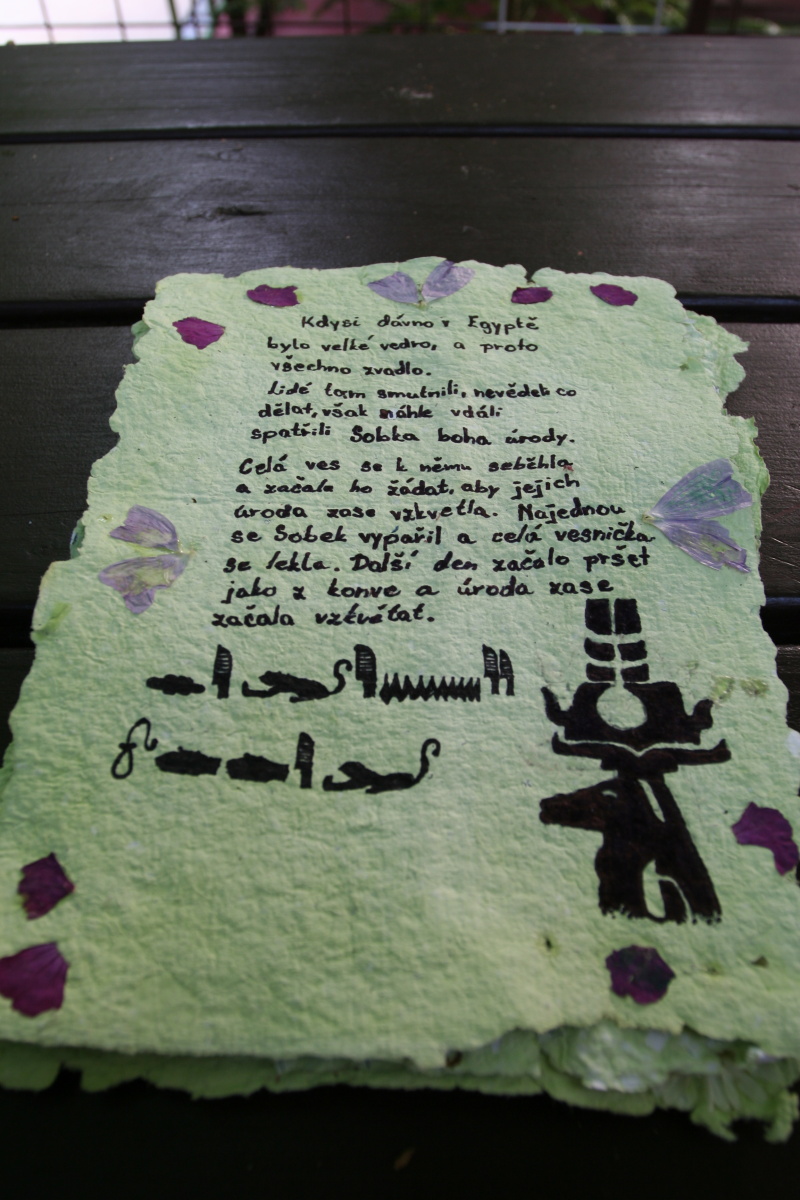 Kdysi dávno v Egyptě
bylo velké vedro, a proto
všechno zvadlo.
Lidé tam smutnili, nevěděli co
dělat, však náhle vdáli
spatřili Sobka boha úrody.
Celá ves se k němu seběhla
a začala ho žádat, aby jejich
úroda zase vzkvetla. Najednou
se Sobek vypařil a celá vesnička
se lekla. Další den začalo pršet
jako z konve a úroda zase
začala vzkvétat.